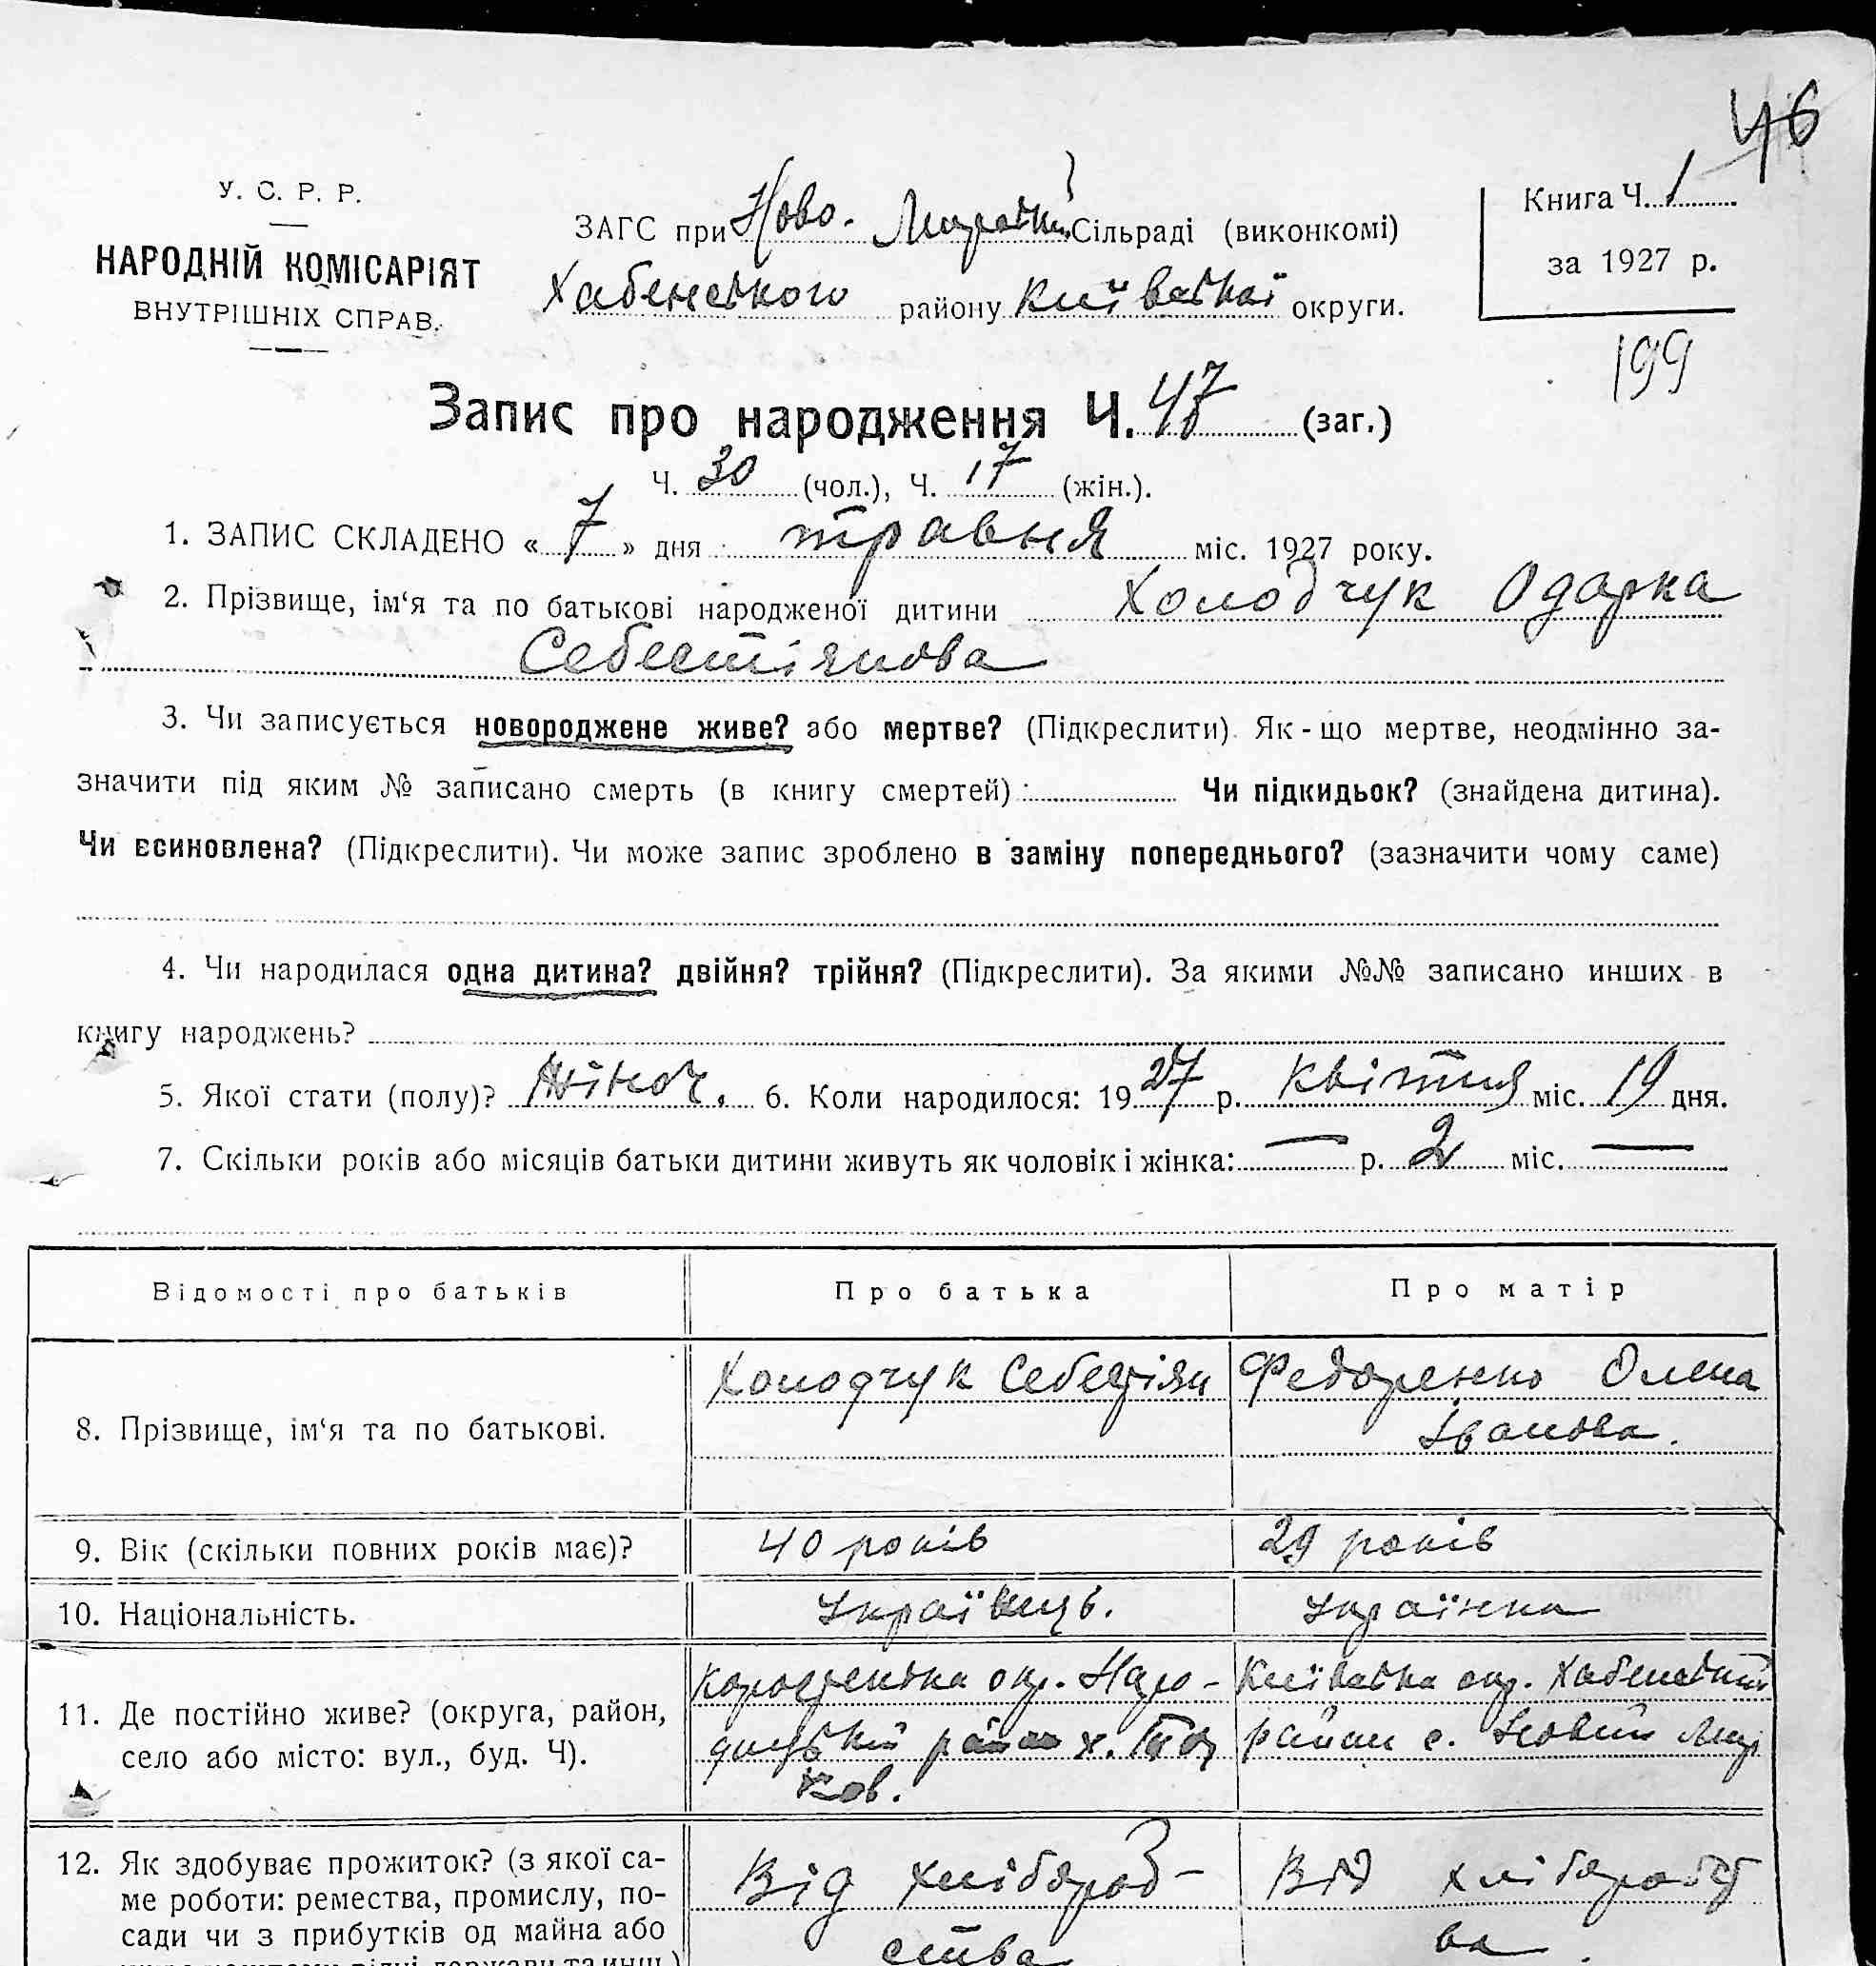 46
У. С. Р. Р.
НАРОДНІЙ КОМІСАРІЯТ
ВНУТРІШНІХ СПРАВ.
ЗАГС при Ново-Мирській Сільраді (виконкомі)
Хабенського району Київської округи.
Книга Ч. 1
за 1927 р.
199
Запис про народження Ч. 47 (заг.)
Ч. 30 (чол.), Ч. 17 (жін.).
1. ЗАПИС СКЛАДЕНО « 7 » дня травня міс. 1927 року.
2. Прізвище, ім‘я та по батькові народженої дитини Холодчук Одарка
Себестіянова
3. Чи записується новороджене живе? або мертве? (Підкреслити). Як-що мертве, неодмінно за-
значити під яким № записано смерть (в книгу смертей) Чи підкидьок? (знайдена дитина).
Чи всиновлена? (Підкреслити). Чи може запис зроблено в заміну попереднього? (зазначити чому саме)
4. Чи народилася одна дитина? двійня? трійня? (Підкреслити). За якими №№ записано инших в
книгу народжень?
5. Якої стати (полу)? Жіноч. 6. Коли народилося: 1927 р. Квітня міс. 19 дня.
7. Скільки років або місяців батьки дитини живуть як чоловік і жінка: — р. 2 міс. —
Відомості про батьків Про батька Про матір
8. Прізвище, ім‘я та по батькові.
Холодчук Себестіян
Федоренко Олена
Іванова.
9. Вік (скільки повних років має)? 40 років 29 років
10. Національність. Українець. Українка
11. Де постійно живе? (округа, район,
село або місто: вул., буд. Ч).
Коростенська окр. Наро-
дицький район х.
ков.
Київська окр. Хабенський
район с. Новий Мир
12. Як здобуває прожиток? (з якої са-
ме роботи: ремества, промислу, по-
сади чи з прибутків од майна або
Від хлібороб-
ства
Від хліборобст
ва.